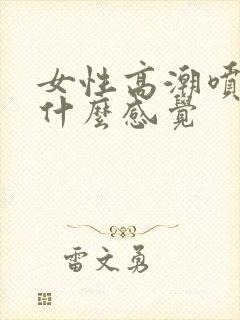 女性高潮噴
什麼感覺
雷文勇